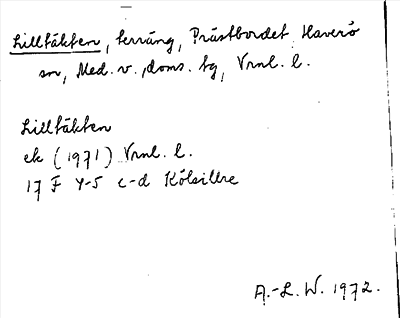 Lilltäkten, terräng, Prästbordet Haverö
sn, Med. v., doms. tg, Vrnl. l.
Lilltäkten
ek (1971) Vrnl. l.
17 F 4-5 c-d Kölsillre
A.-L. W. 1972.